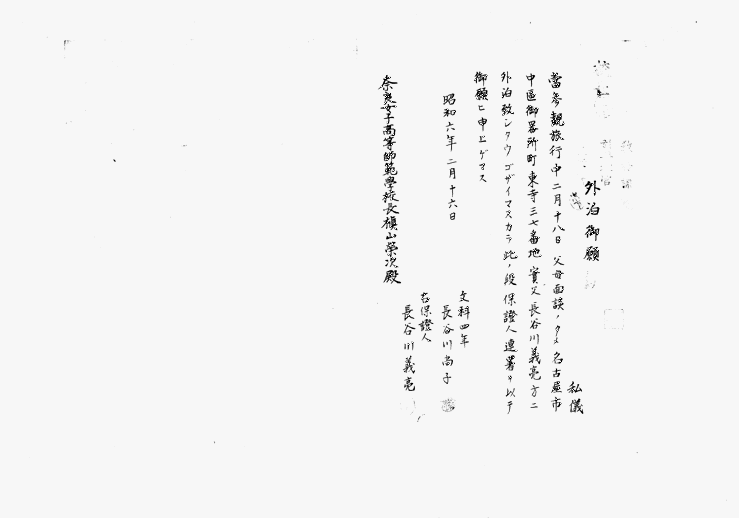 外泊御願
私儀
當參觀旅行中二月十八日父母面談ノタメ名古屋市
中區御器所町東寺三七番地實父長谷川義亮方ニ
外泊致シタウゴザイマスカラ此ノ段保證人連署ヲ以テ
御願ヒ申上ゲマス
昭和六年二月十六日
文科四年
長谷川尚子
右保證人
長谷川義亮
奈良女子高等師範學校長槇山榮次殿